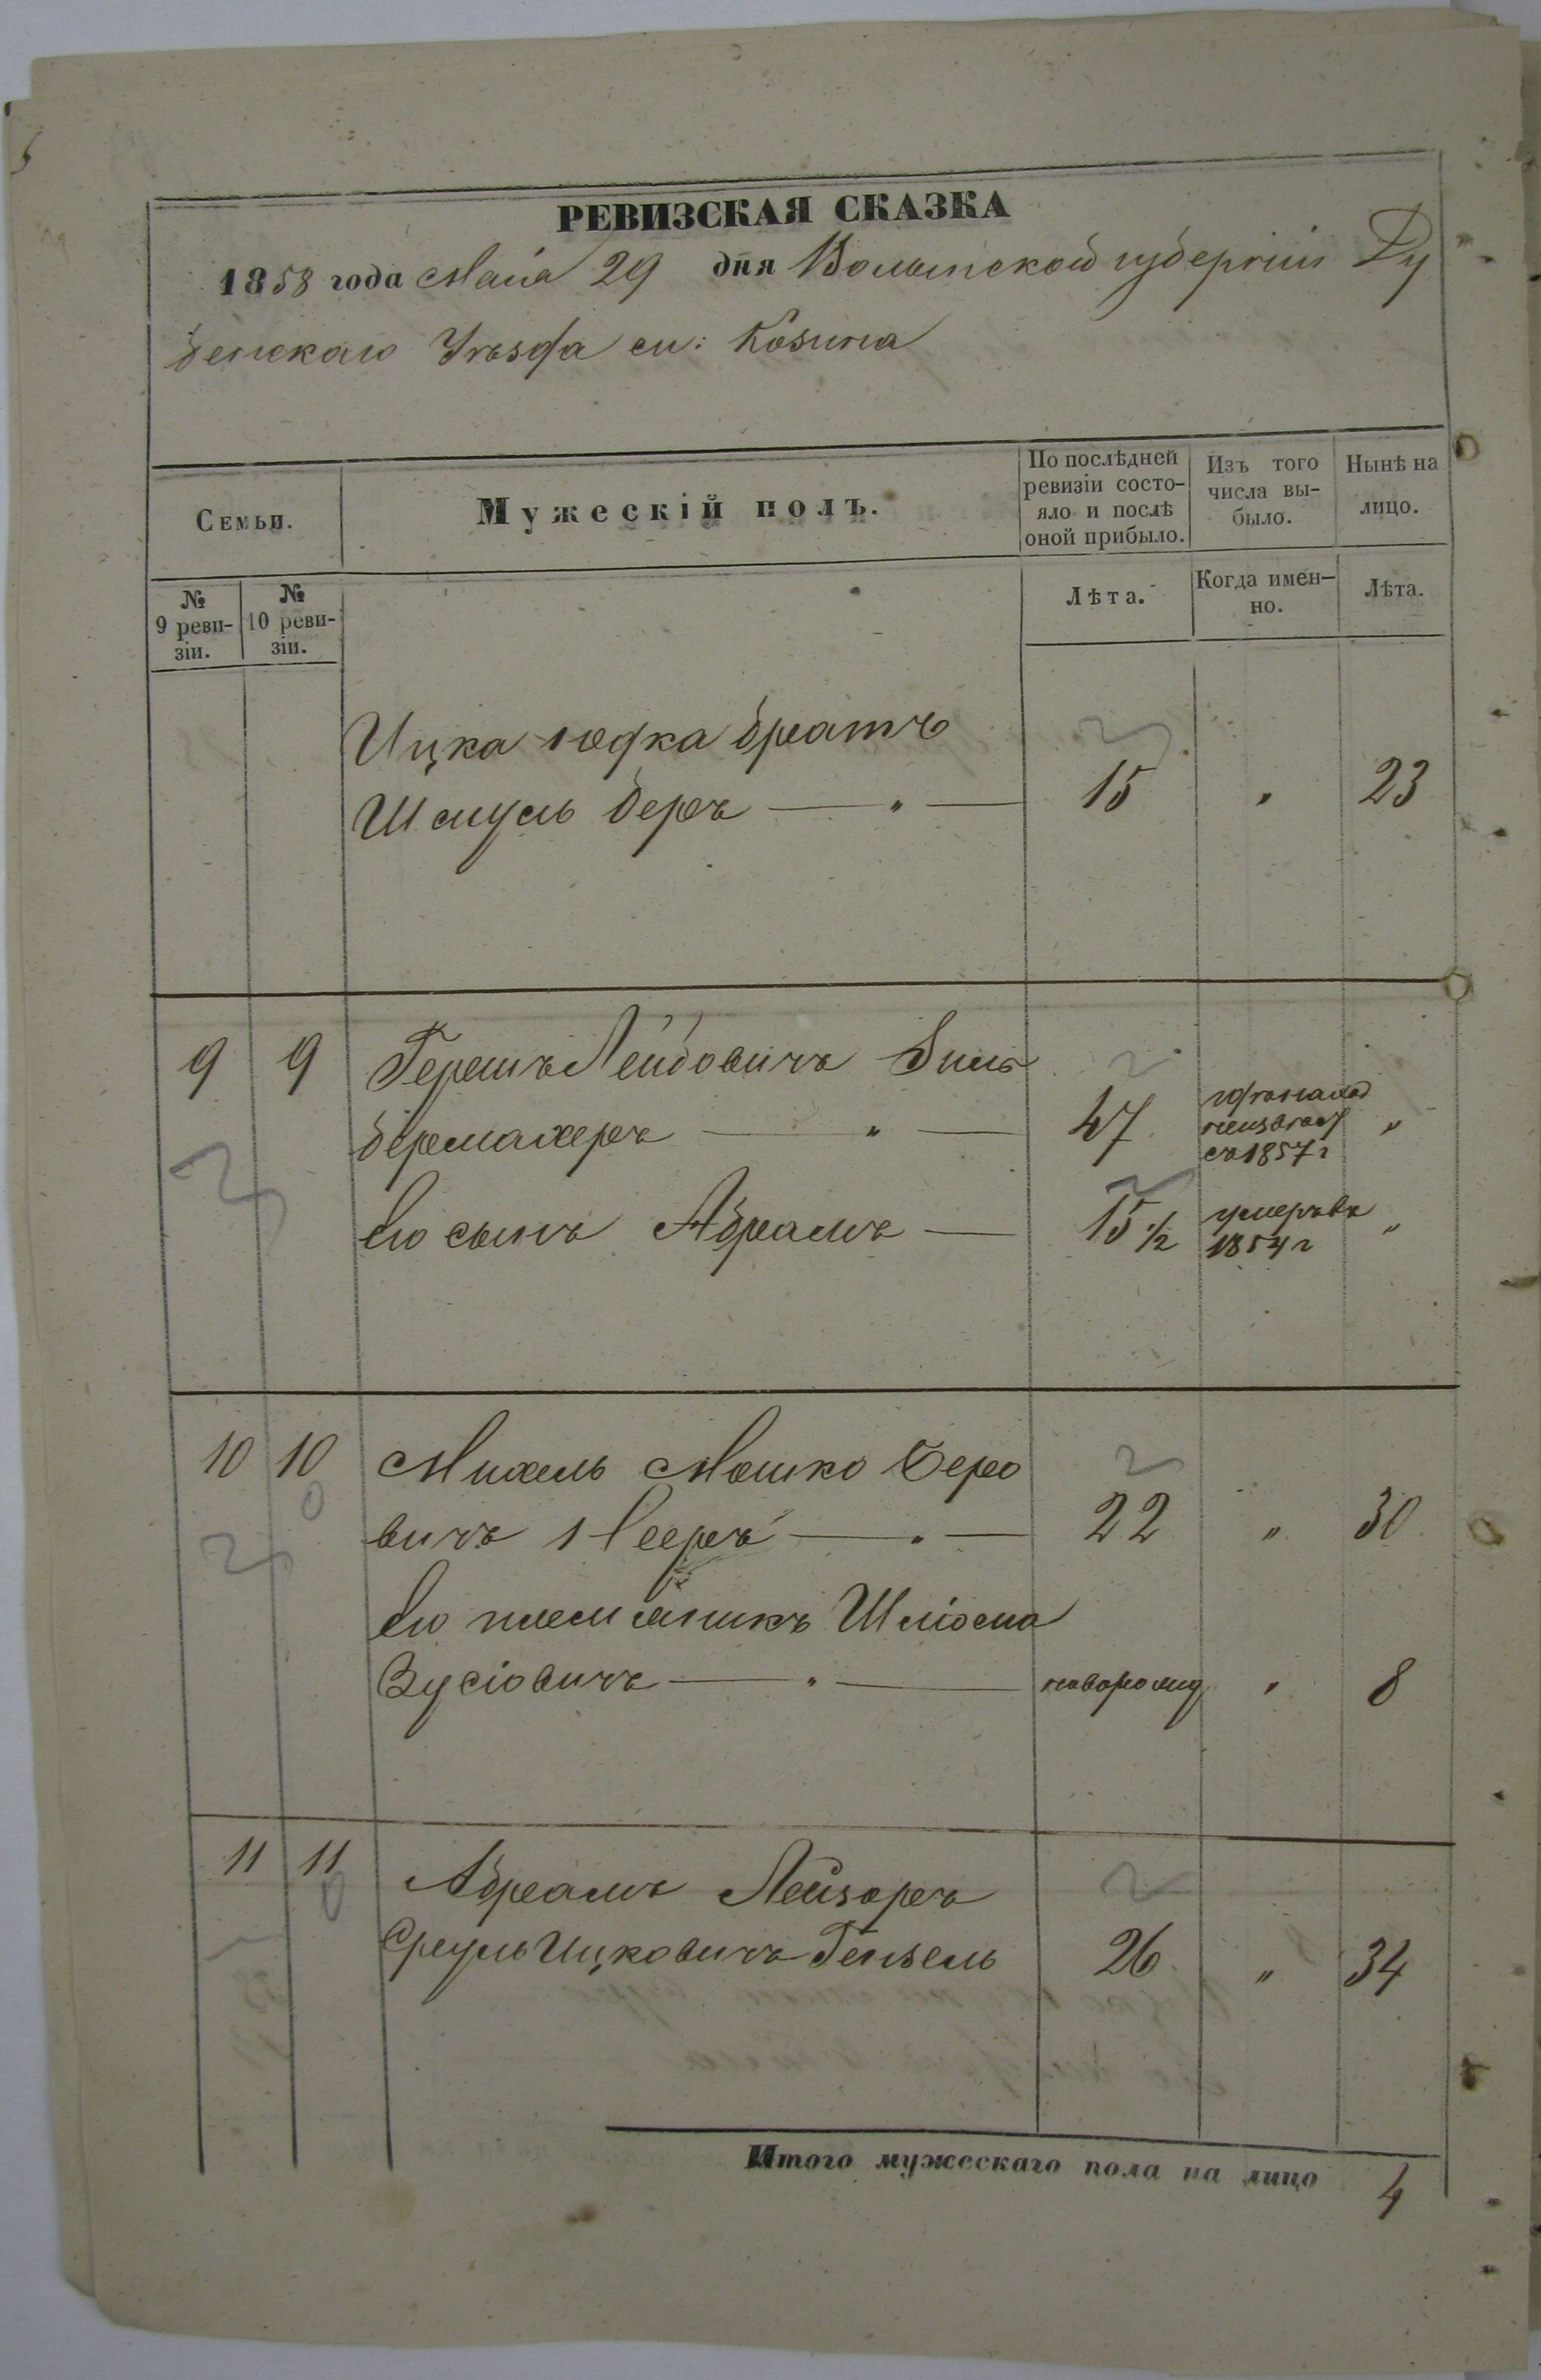 РЕВИЗСКАЯ СКАЗКА
1858 года Маія 29 дня Волынской губерніи Ду
бенскаго Уѣзда см: Козина
Семьи.
Мужескій полъ.
По послѣдней ревизіи состо-
яло и послѣ
оной прибыло.
Изъ того
числа вы-
было.
Нынѣ на
лицо.
№
9 реви-
зіи.
№
10 реви-
зіи.
Лѣта.
Когда имен-
но.
Лѣта.
Ицка Юдка братъ
Шмуль Беръ — " — 15 " 23
9 9 Гершъ Лейбовичъ Зиль
бермахеръ — " — 47 "
съ 1857 г
Его сынъ Абрамъ — 15 1/2 умеръ въ "
1854 г
10 10 Михель Мошко Беро
вичъ — " — 22 " 30
Его племяникъ Шліома
Зусіовичъ — " — новорожд " 8
11 11 Абрамъ Лейзоръ
Сруль Ицковичъ Гензель 26 " 34
Итого мужескаго пола на лицо 4